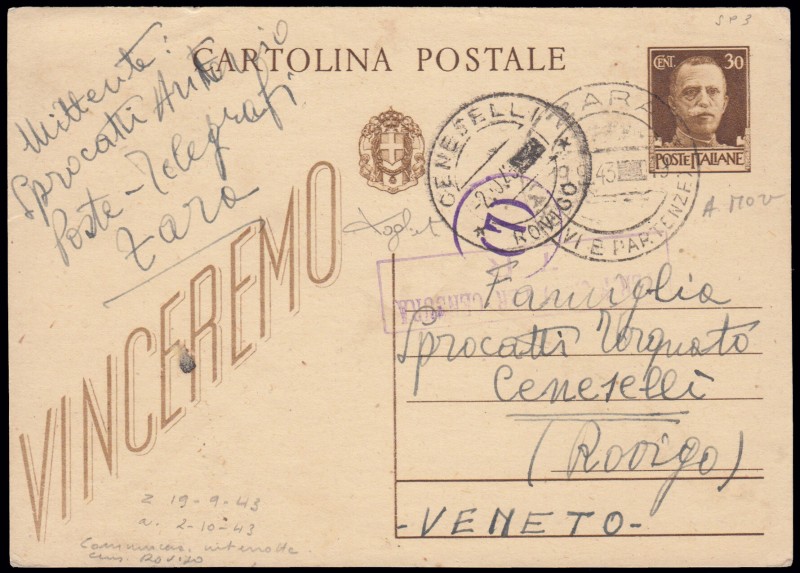 SP3
CARTOLINA POSTALE
CENT. 30
POSTE ITALIANE
Mittente:
Sprocatti Antonio
Poste-Telegrafi
Zara
CENESELLI
ROVIGO
ZARA
43
VI E PARTENZE
A MOV
(7)
CENSURA
VINCEREMO
Famiglia
Sprocatti Torquato
Ceneselli
(Rovigo)
-VENETO-
Z 19-9-43
a. 2-10-43
Comunicaz. interrotte
cens. Rovigo